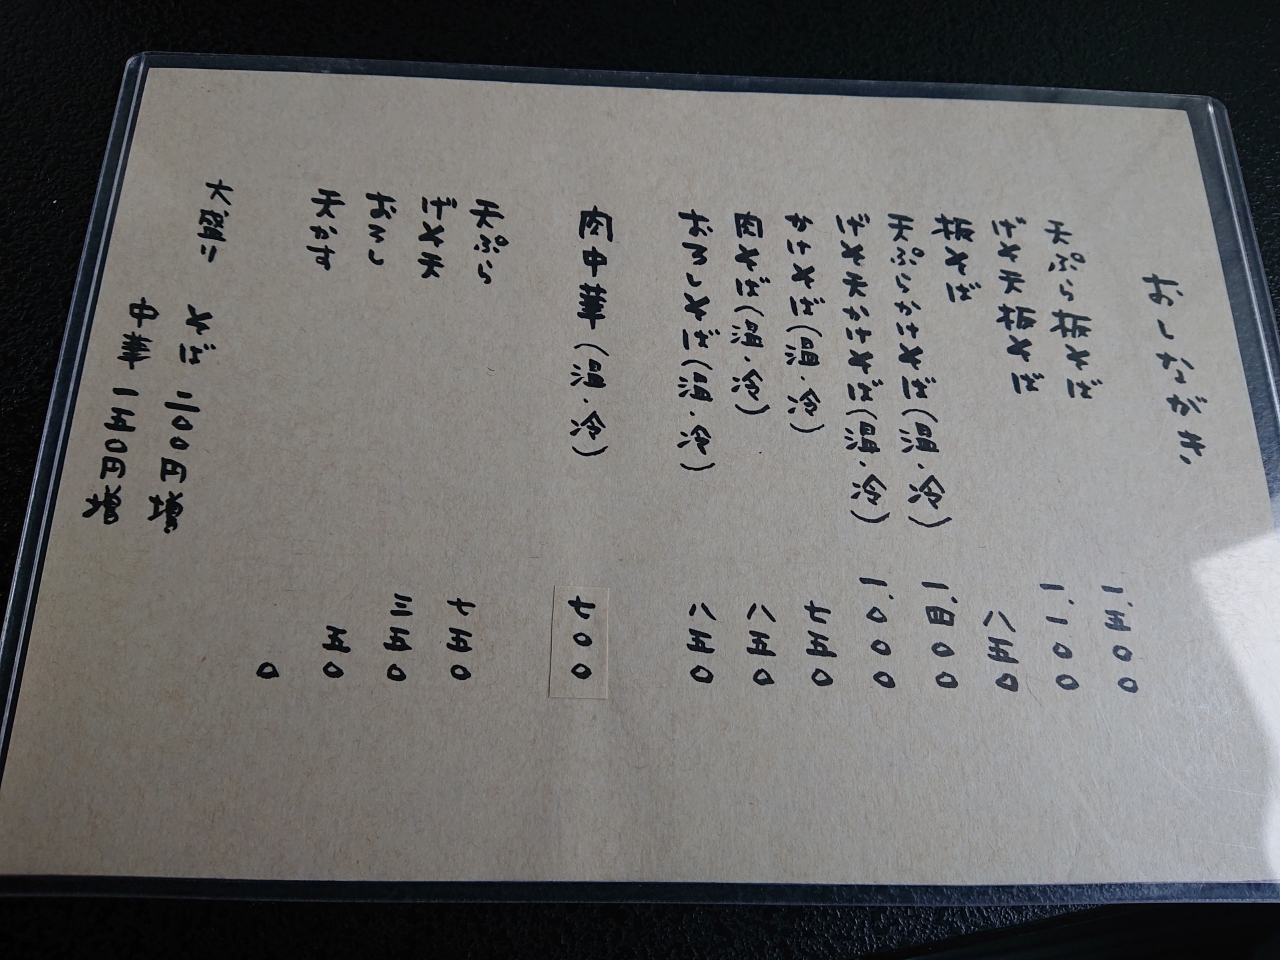 おしながき
天ぷら板そば 1.五00
げそ天板そば 1.100
板そば 八五0
天ぷらかけそば(温・冷) 1.四00
げそ天かけそば(温・冷) 1.000
かけそば(温・冷) 七五0
肉そば(温・冷) 八五0
おろしそば(温・冷) 八五0
肉中華(温・冷) 七00
天ぷら 七五0
げそ天 三五0
おろし 五0
天かす 0
大盛り そば 二00円増
中華 一五0円増